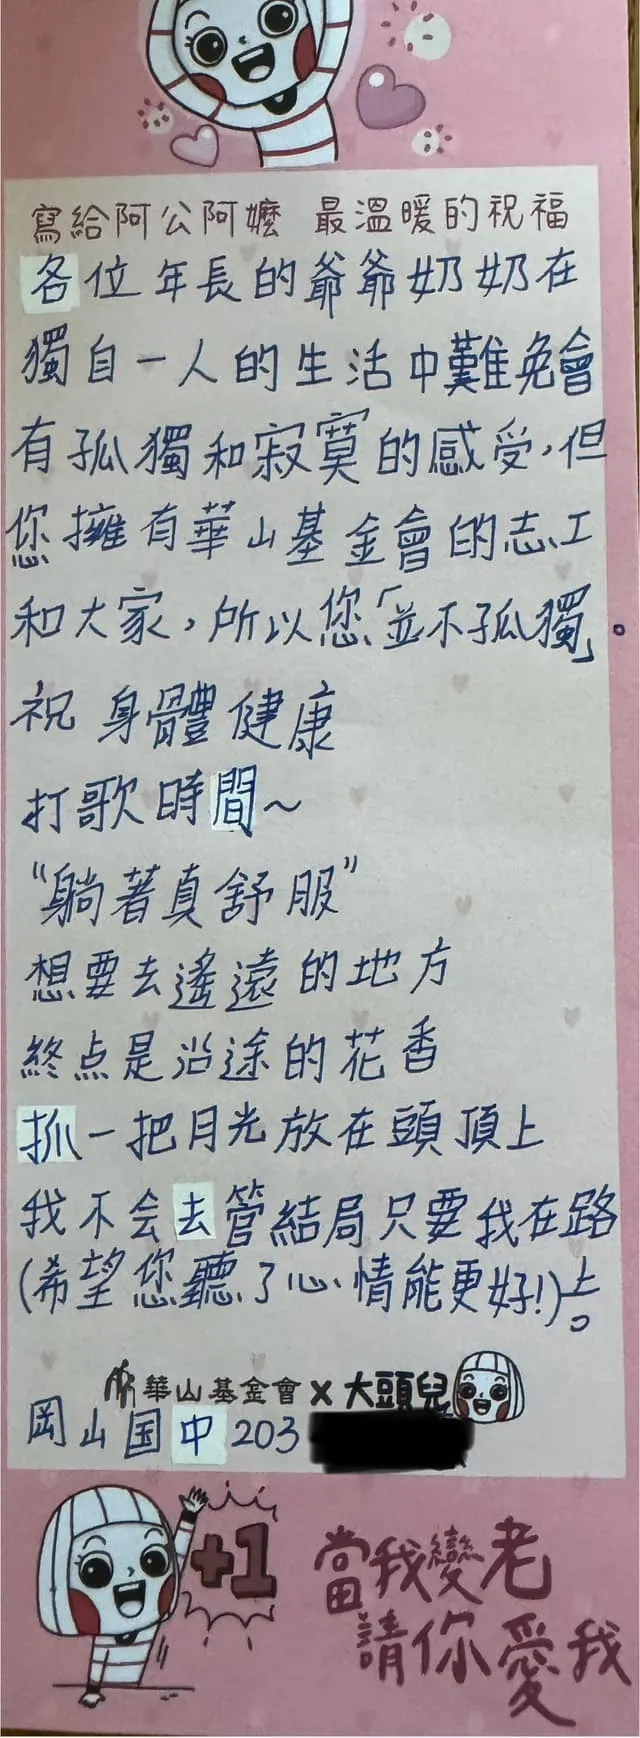 寫給阿公阿嬤 最溫暖的祝福
各位年長的爺爺奶奶在
獨自一人的生活中難免會
有孤獨和寂寞的感受,但
您擁有華山基金會的志工
和大家,所以您「並不孤獨」。
祝 身體健康
打歌時間~
“躺著真舒服”
想要去遙遠的地方
終点是沿途的花香
抓一把月光放在頭頂上
我不会去管結局只要我在路
(希望您聽了心情能更好!)上。
華山基金會 x 大頭兒
岡山国中 203
+1
當我變老
請你愛我